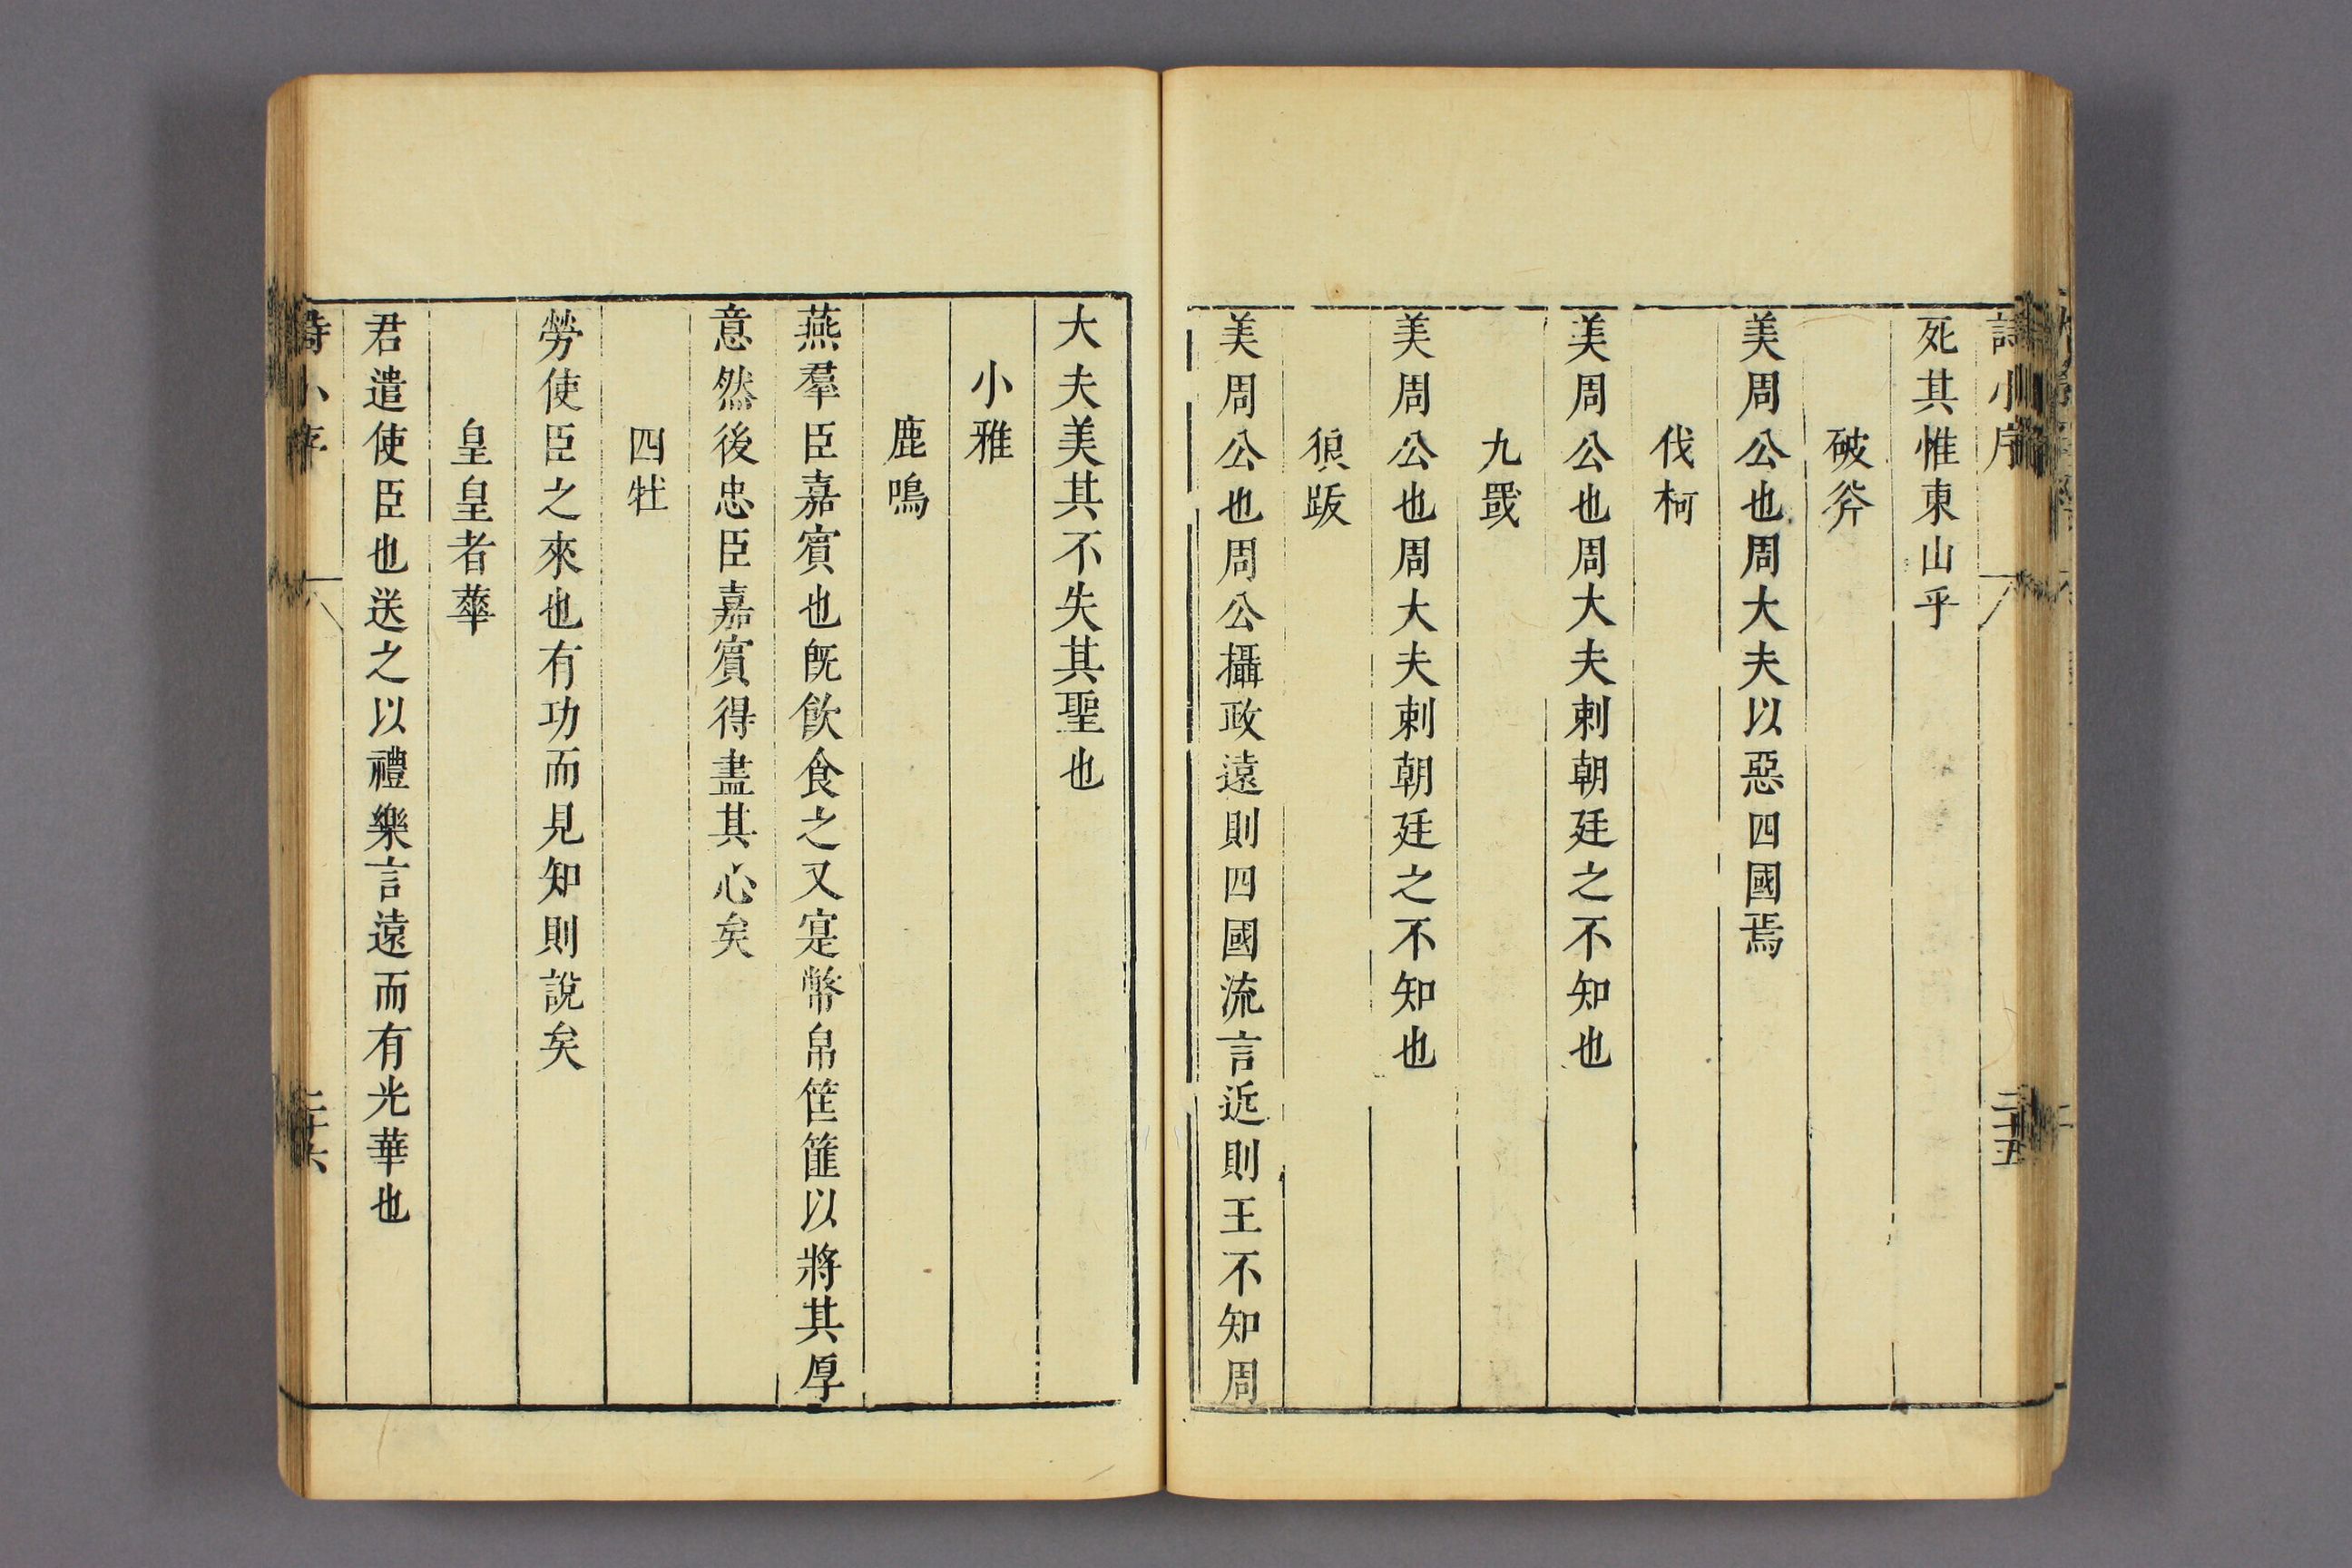 詩小序 二十五
死其惟東山乎
破斧
美周公也周大夫以惡四國焉
伐柯
美周公也周大夫刺朝廷之不知也
九罭
美周公也周大夫刺朝廷之不知也
狼跋
美周公也周公攝政遠則四國流言近則王不知周
大夫美其不失其聖也
小雅
鹿鳴
燕羣臣嘉賓也旣飮食之又寔幣帛筐篚以將其厚
意然後忠臣嘉賓得盡其心矣
四牡
勞使臣之來也有功而見知則說矣
皇皇者華
君遣使臣也送之以禮樂言遠而有光華也
詩小序 二十六